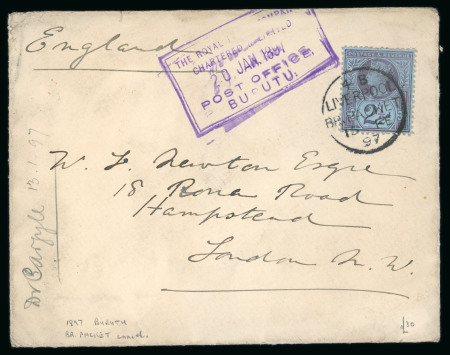 England
THE ROYAL COMPANY
CHARTERED LIMITED
20 JAN. 1897
POST OFFICE
BURUTU.
LIVERPOOL
97
W. F. Newton Esqre
18 Rona Road
Hampstead
London N.W.
Dr Cargyle 13.1.97
1897 BURUTU
BR. PACKET cancel.
£30